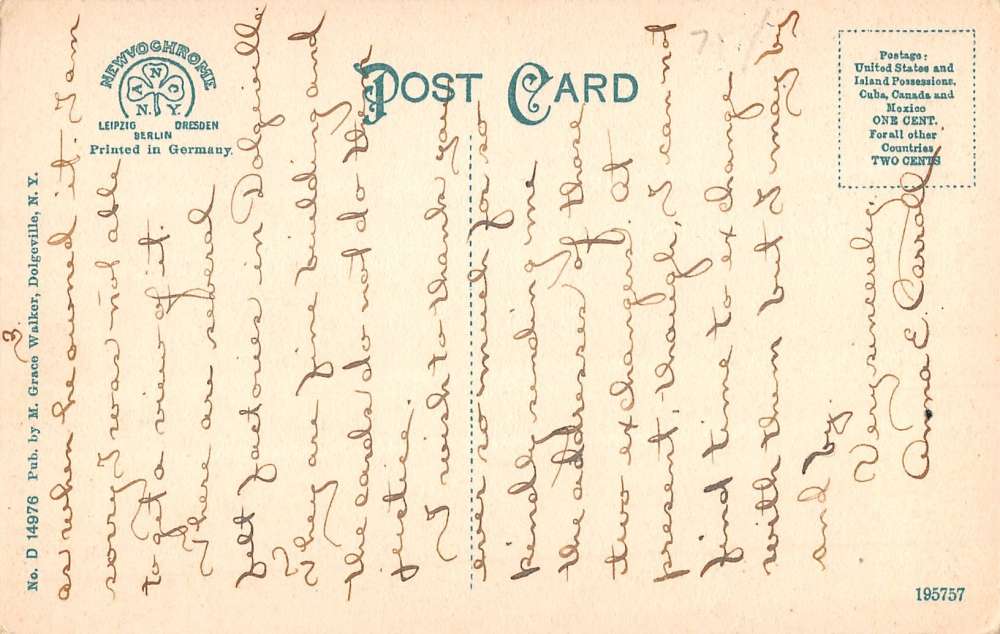 NEWVOCHROME
A N C
N.Y.
LEIPZIG DRESDEN
BERLIN
Printed in Germany.
POST CARD
Postage:
United States and
Island Possessions,
Cuba, Canada and
Mexico
ONE CENT.
For all other
Countries
TWO CENTS
No. D 14976 Pub. by M. Grace Walker, Dolgeville, N. Y.
3.
as when he owned it. I am
sorry I was not able
to get a view of it.
There are several
felt factories in Dolgeville.
They are fine buildings and
the cards do not do them
justice.
I wish to thank you
ever so much for so
kindly sending me
the addresses of those
two exchangers. At
present, though, I cannot
find time to exchange
with them but I may by
and by.
Very sincerely,
Anna E. Carroll
195757